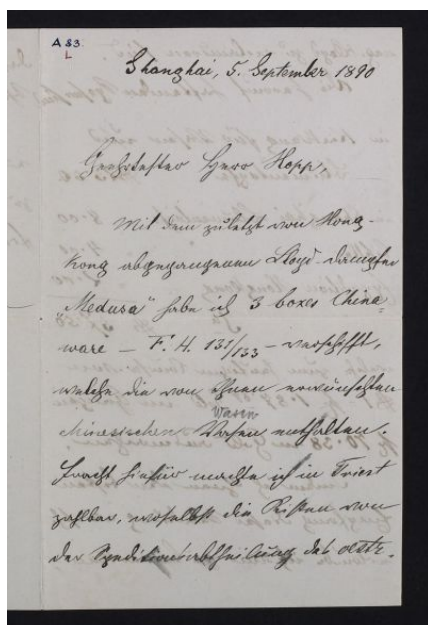 A 83.
L
Shanghai, 5. September 1890
Geehrtester Herr Hopp,
Mit dem zuletzt von Hong-
kong abgegangenen Lloyd-dampfer
„Medusa" habe ich 3 boxes China-
ware – F. H. 131/133 – verschifft,
welche die von Ihnen erwünschten
Chinesischen Vasen enthalten.
Waren
Fracht hiefür machte ich in Triest
zahlbar, woselbst die Kisten von
der Speditionsabtheilung des oestr.